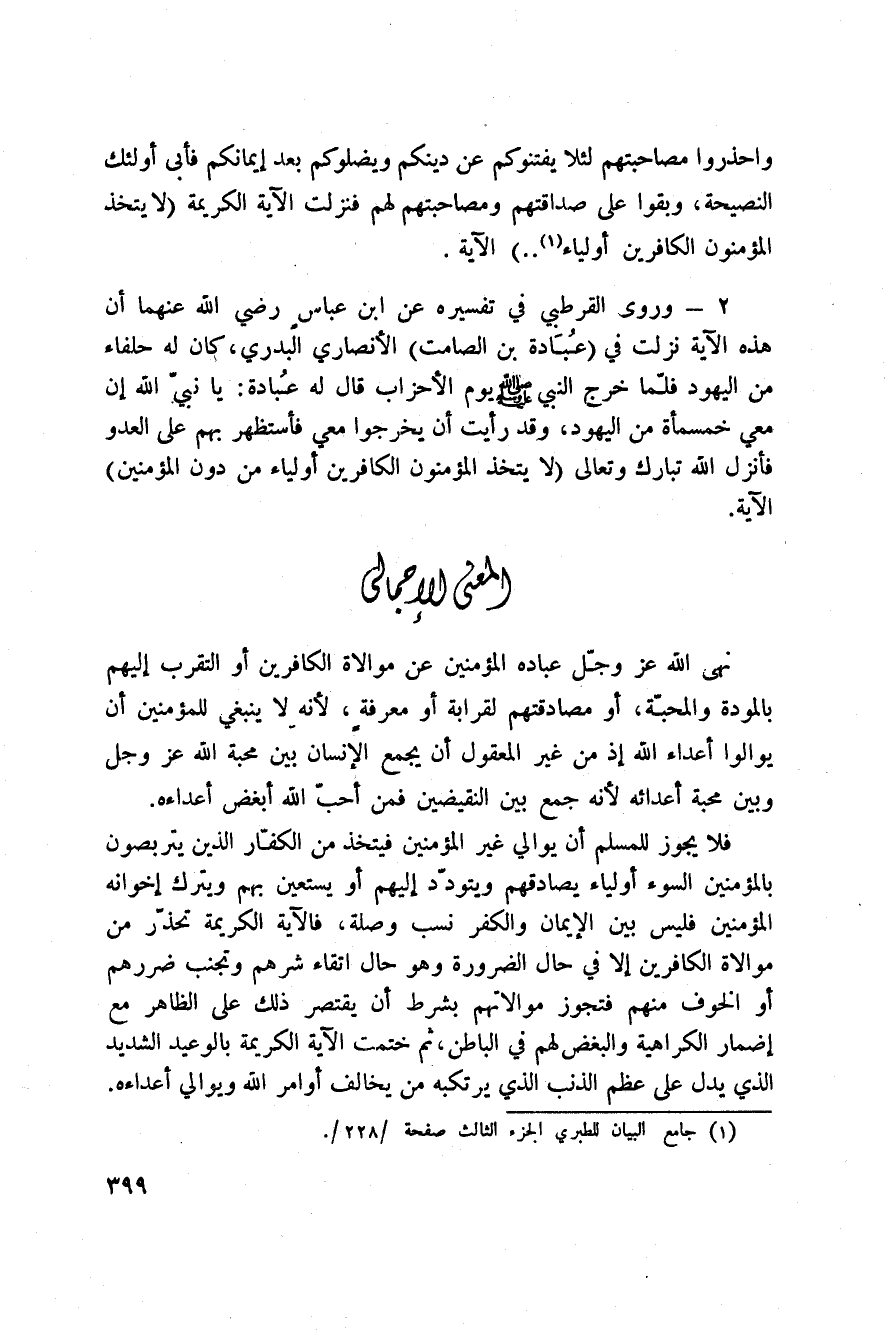 واحذروا مصاحبتهم لئلا يفتنوكم عن دينكم ويضلوكم بعد إيمانكم فأبى أولئك
النصيحة، وبقوا على صداقتهم ومصاحبتهم لهم فنزلت الآية الكريمة (لا يتخذ
المؤمنون الكافرين أولياء(١)..) الآية .
٢ – وروى القرطبي في تفسيره عن ابن عباسٍ رضي الله عنهما أن
هذه الآية نزلت في (عُبَادة بن الصامت) الأنصاري البدري، كان له حلفاء
من اليهود فلمّا خرج النبي ﷺ يوم الأحزاب قال له عُبادة: يا نبيّ الله إن
معي خمسمأة من اليهود، وقد رأيت أن يخرجوا معي فأستظهر بهم على العدو
فأنزل الله تبارك وتعالى (لا يتخذ المؤمنون الكافرين أولياء من دون المؤمنين)
الآية.
المعنى الإجمالي
نهى الله عز وجـّل عباده المؤمنين عن موالاة الكافرين أو التقرب إليهم
بالمودة والمحبـّة، أو مصادقتهم لقرابة أو معرفةٍ، لأنه لا ينبغي للمؤمنين أن
يوالوا أعداء الله إذ من غير المعقول أن يجمع الإنسان بين محبة الله عز وجل
وبين محبة أعدائه لأنه جمع بين النقيضين فمن أحبّ الله أبغض أعداءه.
فلا يجوز للمسلم أن يوالي غير المؤمنين فيتخذ من الكفـّار الذين يتربصون
بالمؤمنين السوء أولياء يصادقهم ويتودّد إليهم أو يستعين بهم ويترك إخوانه
المؤمنين فليس بين الإيمان والكفر نسب وصلة، فالآية الكريمة تحذّر من
موالاة الكافرين إلا في حال الضرورة وهو حال اتقاء شرهم وتجنب ضررهم
أو الخوف منهم فتجوز موالاتهم بشرط أن يقتصر ذلك على الظاهر مع
إضمار الكراهية والبغض لهم في الباطن، ثم ختمت الآية الكريمة بالوعيد الشديد
الذي يدل على عظم الذنب الذي يرتكبه من يخالف أوامر الله ويوالي أعداءه.
(١) جامع البيان للطبري الجزء الثالث صفحة /٢٢٨/.
٣٩٩